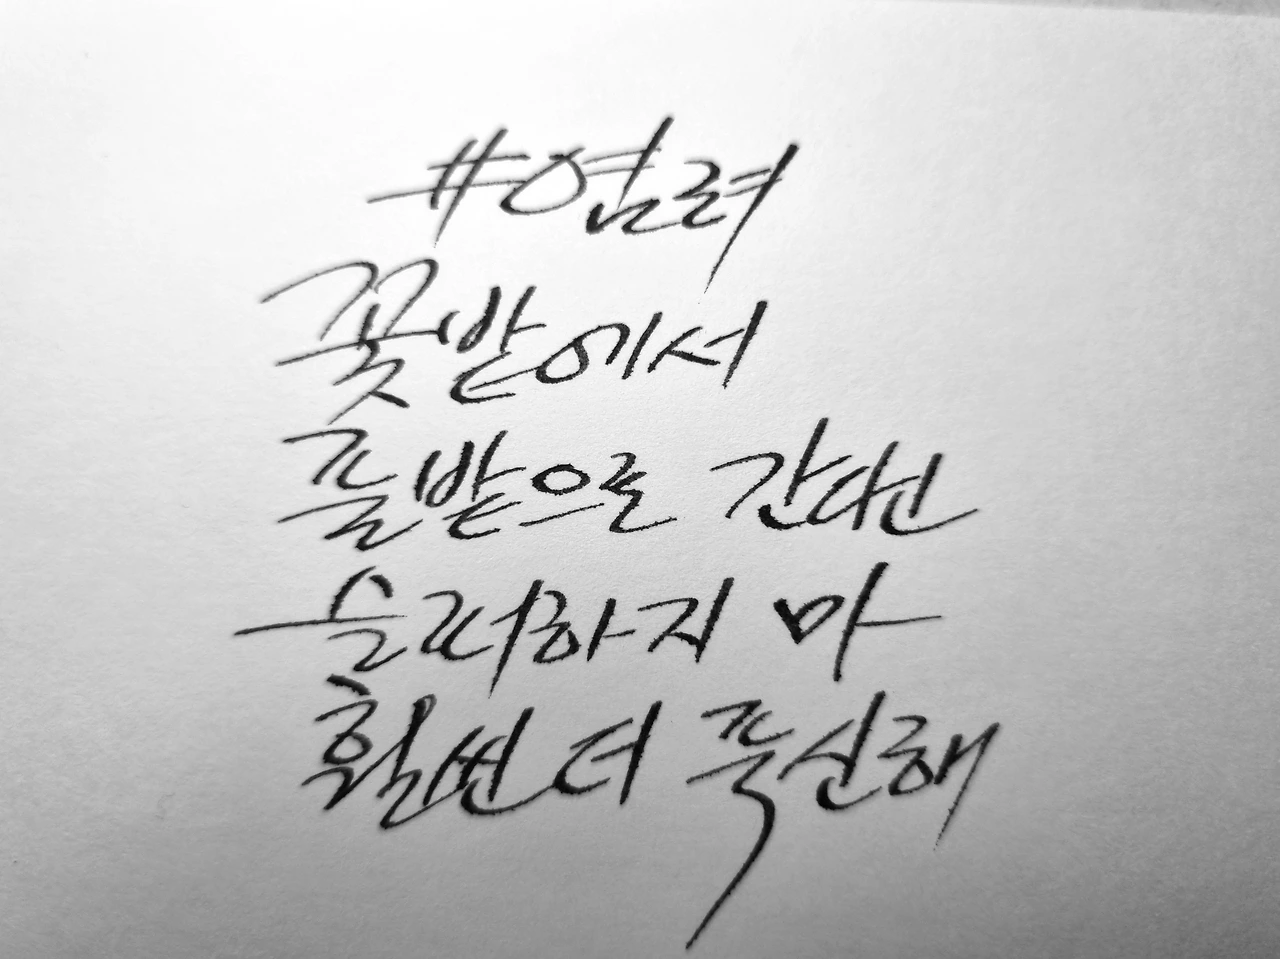 #염려
꽃밭에서
풀밭으로 간다면
슬퍼하지 마
훨씬 더 푹신해